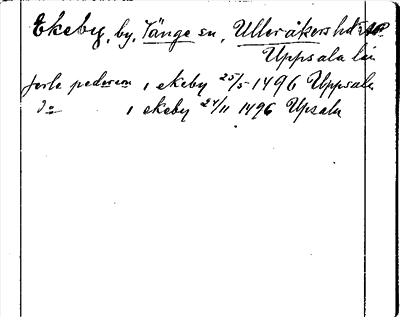 Ekeby, by, Tänge sn, Ulleråkers hd
Uppsala län
Jerle pederson i ekeby 25/5 1496 Uppsala
Do i ekeby 24/11 1496 Upsala